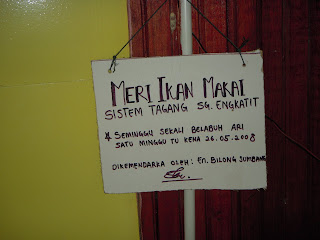 MERI IKAN MAKAI
SISTEM TAGANG SG. ENGKATIT
* SEMINGGU SEKALI BELABUH ARI
SATU MINGGU TU KENA 26.05.2008
DIKEMENDARKA OLEH: EN. BILONG SUMBANG